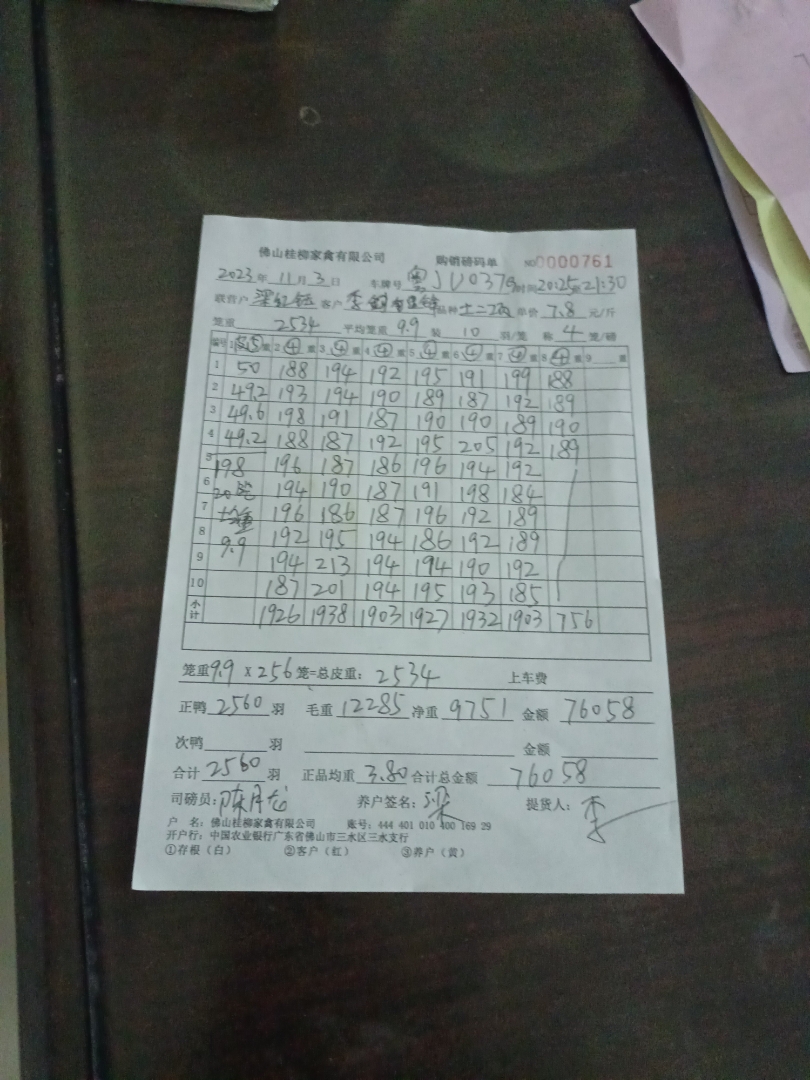 佛山桂柳家禽有限公司 购销磅码单 NO 0000761
2023年 11月 3日 车牌号 粤JU037 时间 20:25 21:30
联营户 梁 客户 李 品种 土二 单价 7.8 元/斤
笼重 2534 平均笼重 9.9 装 10 羽/笼 称 4 笼/磅
编号 1 重 2 ④ 重 3 ④ 重 4 ④ 重 5 ④ 重 6 ④ 重 7 ④ 重 8 ④ 重 9 重
1 50 188 194 192 195 191 199 188
2 49.2 193 194 190 189 187 192 189
3 49.6 198 191 187 190 190 189 190
4 49.2 188 187 192 195 205 192 189
5 198 196 187 186 196 194 192
6 20笼 194 190 187 191 198 184
7 196 186 187 196 192 189
8 9.9 192 195 194 186 192 189
9 194 213 194 194 190 192
10 187 201 194 195 193 185
小计 1926 1938 1903 1927 1932 1903 756
笼重 9.9 X 256 笼=总皮重: 2534 上车费
正鸭 2560 羽 毛重 12285 净重 9751 金额 76058
次鸭 羽 金额
合计 2560 羽 正品均重 3.80 合计总金额 76058
司磅员: 陈月 养户签名: 梁 提货人: 李
户 名: 佛山桂柳家禽有限公司 账号: 444 401 010 400 169 29
开户行: 中国农业银行广东省佛山市三水区三水支行
①存根(白) ②客户(红) ③养户(黄)